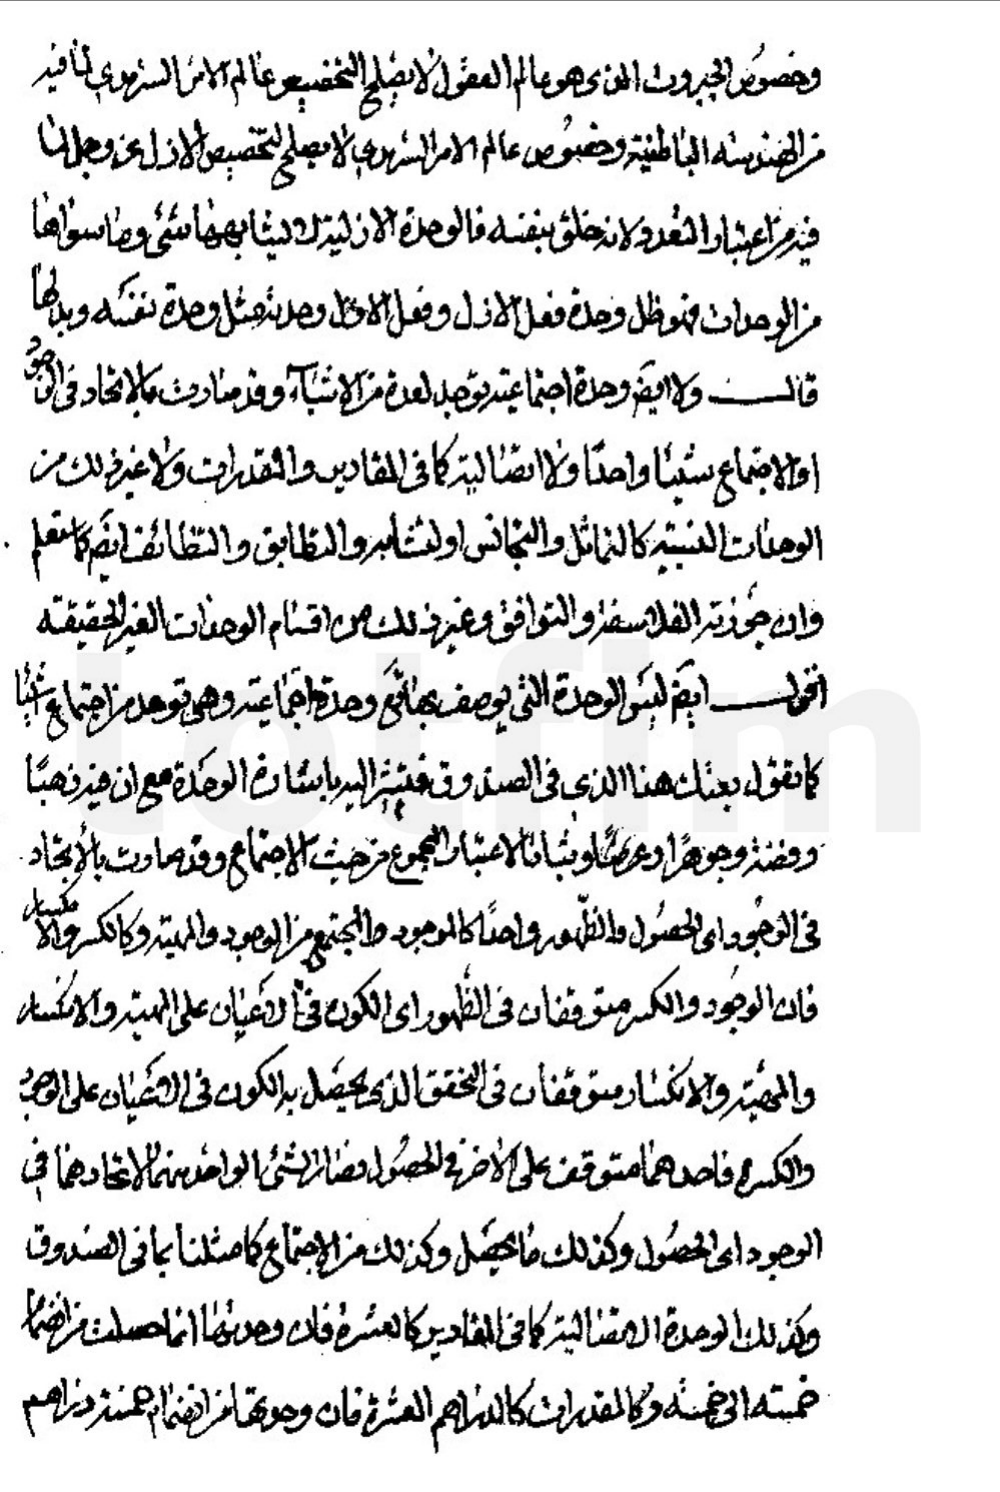 وخصوص الجبروت الذى هو عالم العقول لا يصلح لتخصيص عالم الامر السرمدي لما فيه
من الهندسة الباطنية وخصوص عالم الامر السرمدي لا يصلح لتخصيص الازل عز وجل لما
فيه من اعتبار التعدد ولانه خلق بنفسه فالوحدة الازلية لا يشابهها شئ وما سواها
من الوحدات فهو ظل وحدة فعل الازل وفعل الاول وحدته مثل وحدة نفسك
قال ولا ايضا وحدة اجتماعية توجد لعدة من الاشياء وقد صارت بالاتحاد فى الوجود
او الاجتماع شيئا واحدا ولا اتصالية كما فى المقادير والمتقدرات ولا غير ذلك من
الوحدات النسبية كالتماثل والتجانس والتشابه والتطابق والتضائف ايضا كما ستعلم
وان جوزته الفلاسفة والتوافق وغير ذلك من اقسام الوحدات الغير الحقيقية
اقول ايضا ليس الوحدة التى يوصف بها تعالى وحدة اجتماعية وهى توجد من اجتماع اشياء
كما تقول بعتك هذا الذى فى الصندوق فتشير اليه باشارة الوحدة مع ان فيه ذهبا
وفضة وجوهرا وعرضا وثيابا لاعتبار المجموع من حيث الاجتماع وقد صارت بالاتحاد
فى الوجود اى الحصول والظهور واحدا كالموجود المجتمع من الوجود والمهية وكالكسر والانكسار
فان الوجود والكسر متوقفان فى الظهور اى الكون فى الاعيان على المهية والانكسار
والمهية والانكسار متوقفان فى التحقق الذى يحصل به الكون فى الاعيان على الوجود
والكسر فاحدهما متوقف على الاخر فى الحصول فصار الشئ الواحد بهما لاتحادهما فى
الوجود اى الحصول وكذلك ما يحصل وكذلك من الاجتماع كما مثلنا بما فى الصندوق
وكذلك الوحدة الاتصالية كما فى المقادير كالعشرة فان وحدتها انما حصلت من انضمام
خمسة الى خمسة وكالمقدرات كالدراهم العشرة فان وجودها من انضمام خمسة دراهم